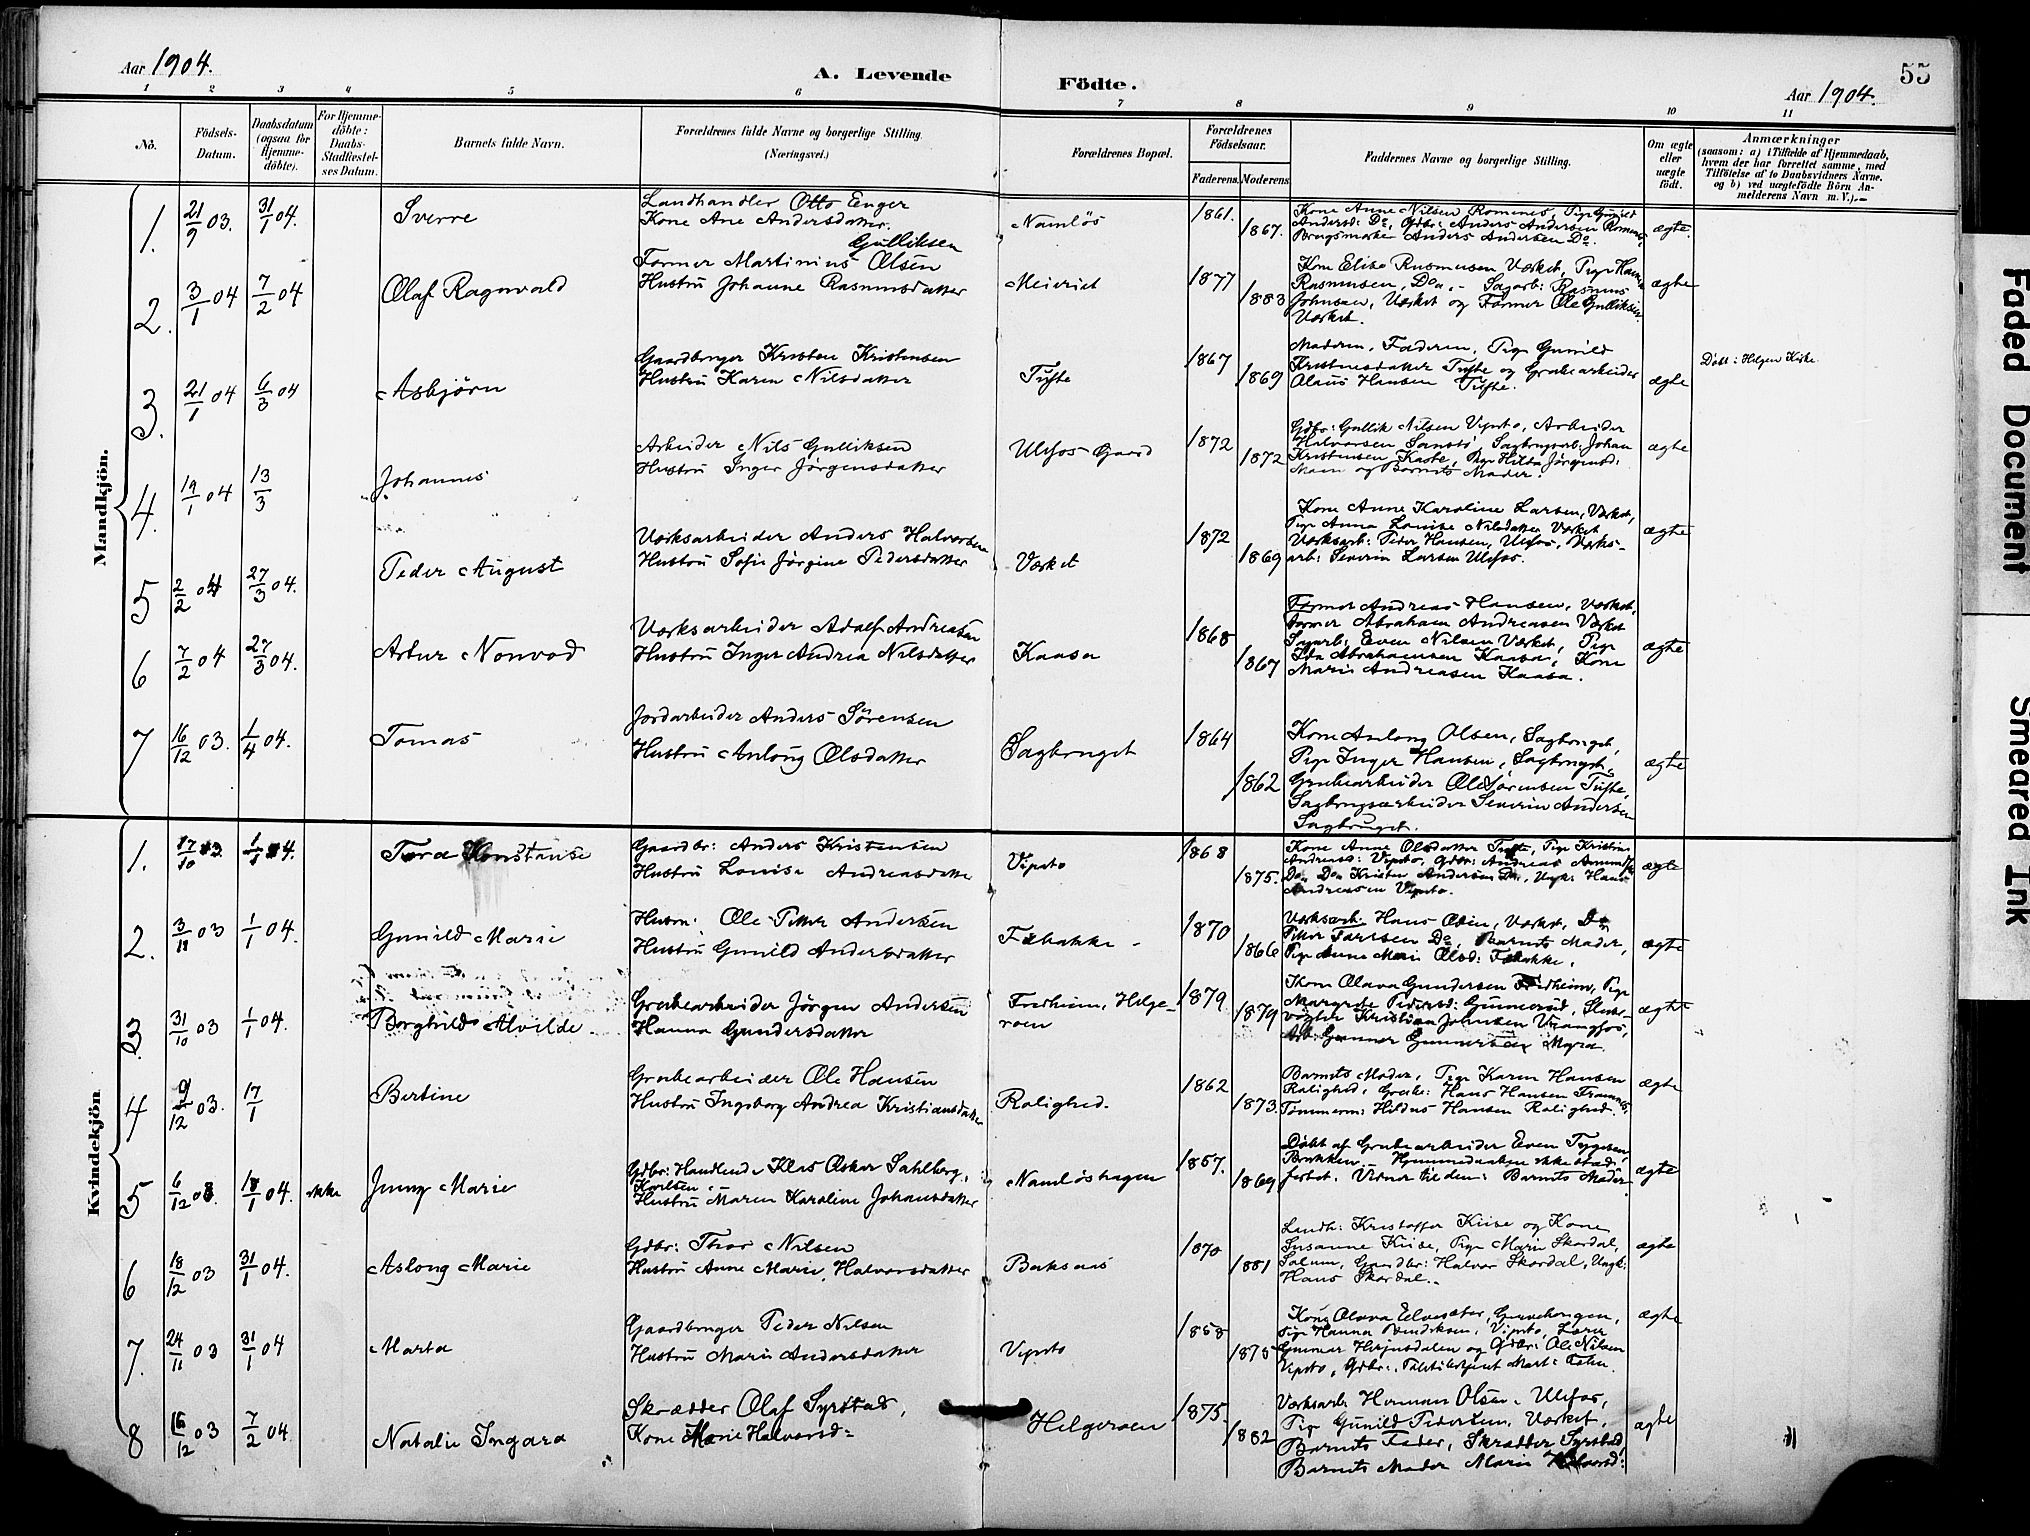 Aar 1904.
A. Levende Födte.
Aar 1904.
55
1 2 3 4 5 6 7 8 9 10 11
No.
Födsels-Datum.
Daabsdatum (ogsaa for Hjemme-döbte).
For Hjemme-döbte: Daabs-Stadfæstel-ses Datum.
Barnets fulde Navn.
Forældrenes fulde Navne og borgerlige Stilling.
(Næringsvei.)
Forældrenes Bopæl.
Forældrenes Födselsaar.
Faderens. Moderens.
Faddernes Navne og borgerlige Stilling.
Om ægte eller uægte födt.
Anmærkninger
(saasom: a) i Tilfælde af Hjemmedaab,
hvem der har forrettet samme, med
Tilföielse af to Daabsvidners Navne.
og b) ved uægtefödte Börn An-
melderens Navn m. V.).
Mandkjön.
1. 21/9 03. 31/1 04. Sverre
Landhandler Otto Enger
Kone Ane Andersdatter.
Namløs 1861. 1867.
Kone Anne Nilsen Romenes, Pige Gunild
Andersd: Do, Gdbr: Anders Andersen Romenes,
Anders Andersen Do.
ægte.
2. 3/1 04 7/2 04 Olaf Ragnvald
Gulliksen
Former Martinius Olsen
Hustru Johanne Rasmusdatter
Meieriet 1877 1883
Kone Elise Rasmusen Værket, Pige
Rasmusen, Do, Sagarb: Rasmus
Johnsen, Værket og Former Ole Gulliksen
Værket.
ægte
3. 21/1 04 6/3 04 Asbjörn
Gaardbruger Kristen Kristensen
Hustru Karen Nilsdatter
Tufte 1867 1869
Moderen, Faderen, Pige Gunild
Kristensdatter Tufte og Grubearbeider
Olaus Hansen Tufte.
ægte
Døbt i Helgen Kirke
4. 19/1 04 13/3 Johannes
Arbeider Nils Gulliksen
Hustru Inger Jørgensdatter
Ulefos Gaard 1872 1872
Gdbr: Gullik Nilsen Vipeto, Arbeider
Halvorsen Sanstø, Sagbrugsarb: Johan
Kristensen Kaste, Pige Hilda Jørgensd:
og Barnets Moder.
ægte
5 2/2 04 27/3 04. Peder August
Værksarbeider Anders Halvorsen
Hustru Sofie Jørgine Pedersdatter
Værket 1872 1869
Kone Anne Karoline Larsen, Værket,
Pige Anna Louise Nilsdatter Værket
Værksarb: Peder Hansen, Ulefos, Værks-
arb: Severin Larsen Ulefos.
ægte
6 7/2 04 27/3 04. Artur Nonvod
Værksarbeider Adolf Andreasen
Hustru Inger Andrea Nilsdatter
Kaasa 1868 1867
Former Andreas Hansen, Værket,
Former Abraham Andreasen Værket
Sagarb: Even Nilsen Værket, Pige
Ida Abrahamsen Kaasa, Kone
Marie Andreasen Kaasa.
ægte
7 16/12 03. 1/4 04. Tomas
Jordarbeider Anders Sørensen
Hustru Anlong Olsdatter
Sagbruget 1864 1862
Kone Anlong Olsen, Sagbruget,
Pige Inger Hansen, Sagbruget,
Grubearbeider Ole Sørensen Tufte,
Sagbrugsarbeider Severin Andersen
Sagbruget.
ægte
Kvindekjön
1. 17/10 03. 1/1 04. Tora Konstanse
Gaardbr: Anders Kristensen
Hustru Louise Andreasdatter
Vipeto 1868 1875.
Kone Anne Olsdatter Tufte, Pige Kristine
Andreasd: Vipeto, Gdbr: Andreas
Do Do Kristen Andersen Do, Ungk: Hans
Andreasen Vipeto.
ægte
2. 3/11 03 1/1 04. Gunild Marie
Ole Petter Andersen
Hustru Gunild Andersdatter
Fæbakke 1870 1866
Værksarb: Hans Olsen, Værket, Do
Petter Do, Barnets Moder,
Pige Anne Marie Olsd: Fæbakke.
ægte
3. 31/10 03 1/1 04. Borghild Alvilde
Grubearbeider Jörgen Andersen
Hanna Gundersdatter
Fredheim, Helge-
roen 1879 1879
Kone Olava Gundersen Fredheim, Pige
Margrete Pedersd: Gunnerud, Sluse-
vogter Kristian Johnsen Vrangfos,
Arb: Gunner Gunnersen Myra.
ægte
4 9/12 03. 17/1 Bertine
Grubearbeider Ole Hansen
Hustru Ingeborg Andrea Kristiansdatter
Rolighed. 1862 1873.
Barnets Moder, Pige Karen Hansen
Rolighed, Grubea: Hans Hansen
Tømmerm: Hildus Hansen Rolighed.
ægte
5 6/12 03. 18/1 04. ikke Jenny Marie
Gdbr: Handlende Klas Oskar Sahlberg,
Karlsen
Hustru Maren Karoline Johansdatter
Namløshagen 1857. 1869
Døbt af Grubearbeider Even Tygesen
Brekken. Hjemmedaaben ikke stad-
festet. Vidner til den: Barnets Moder
ægte
6 18/12 03 31/1 04. Aslong Marie
Gdbr: Thor Nilsen
Hustru Anne Marie, Halvorsdatter
Baksaas 1870 1881
Landh: Kristoffer Kiise og Kone
Susanne Kiise, Pige Marie Skardal,
Solum, Gaardbr: Halvor Skardal, Ungk:
Hans Skardal.
ægte
7. 24/11 03 31/1 04 Marta
Gaardbruger Peder Nilsen
Hustru Maris Andersdatter
Vipeto 1858 1875
Kone Olava
Pige Hanna Bendiksen, Vipeto, Lærer
Gunnar Herjusdalen og Gdbr: Ole Nilsen
Vipeto, Gdbr:
ægte
8 16/12 03 7/2 04 Natalie Ingara
Skrædder Olaf Syrstad,
Kone Marie Halvorsd:
Helgeroen 1875. 1882
Værksarb. Herman Olsen, Ulefos,
Pige Gunild Pedersen, Værket,
Barnets Fader, Skrædder Syrstad,
Barnets Moder Marie Halvorsd:
ægte
Faded Document
Smeared Ink